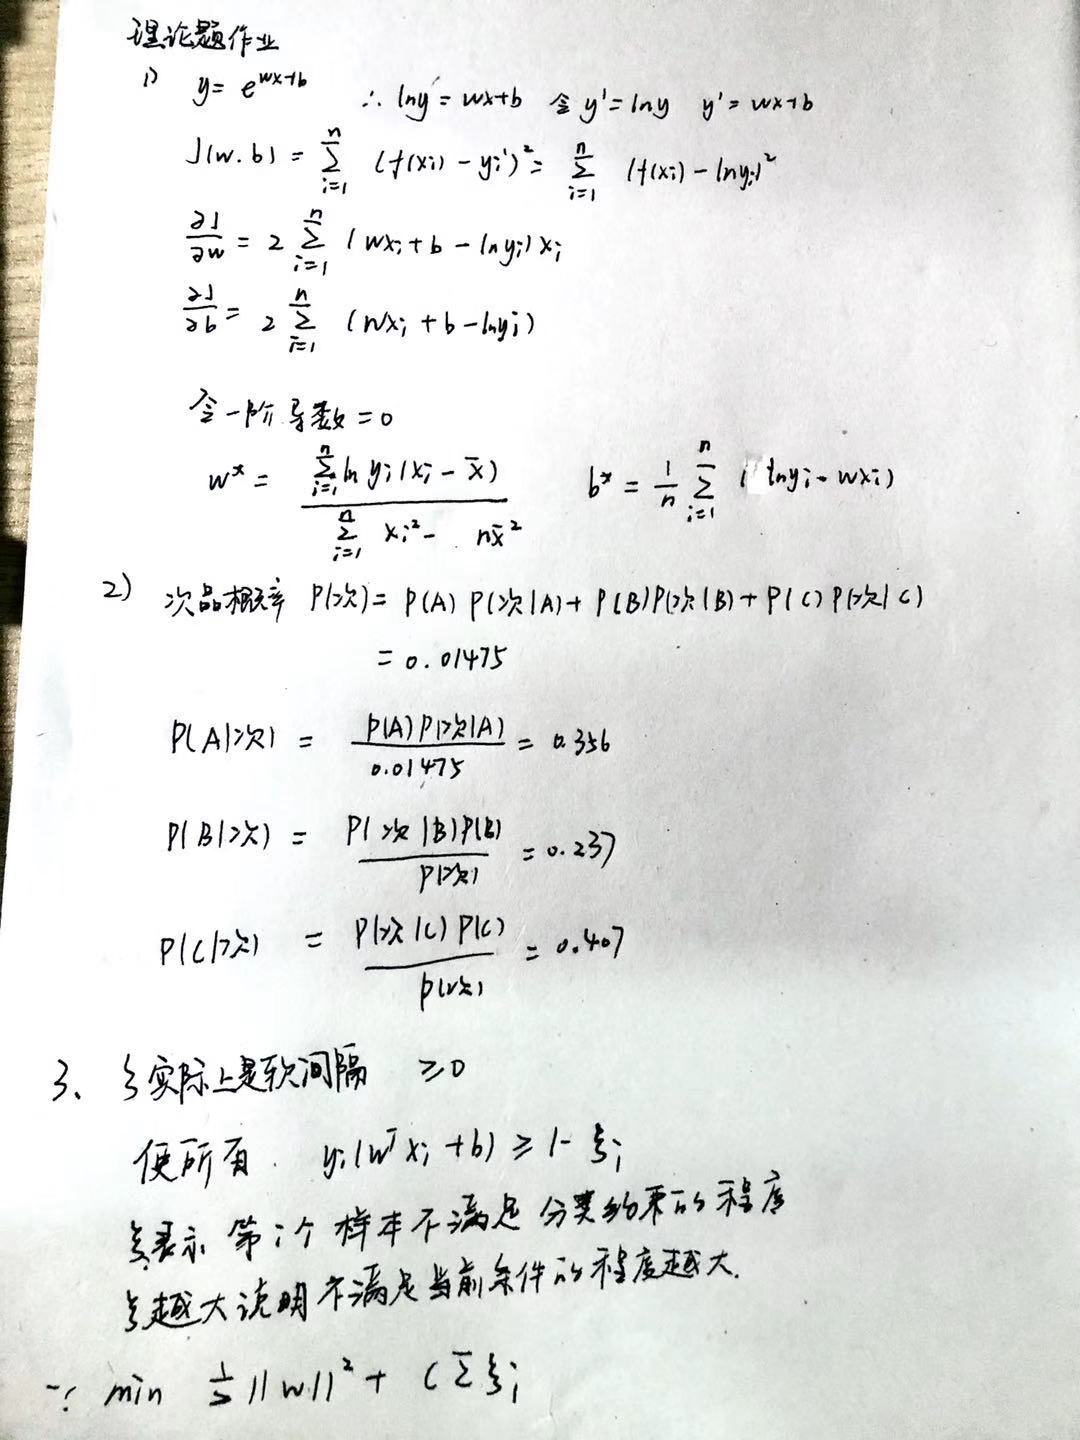 理论题作业
1) y = e^{wx+b} ∴ lny = wx+b 令 y' = lny y' = wx+b
J(w.b) = \sum_{i=1}^{n} (f(xi) - yi')² = \sum_{i=1}^{n} (f(xi) - lnyi)²
∂J/∂w = 2 \sum_{i=1}^{n} (wxi + b - lnyi) xi
∂J/∂b = 2 \sum_{i=1}^{n} (wxi + b - lnyi)
令一阶导数 = 0
w* = \frac{\sum_{i=1}^{n} ln yi (xi - x̄)}{\sum_{i=1}^{n} xi² - nx̄²} b* = \frac{1}{n} \sum_{i=1}^{n} (lnyi - wxi)
2) 次品概率 P(次) = P(A) P(次|A) + P(B) P(次|B) + P(C) P(次|C)
= 0.01475
P(A|次) = \frac{P(A) P(次|A)}{0.01475} = 0.356
P(B|次) = \frac{P(次|B) P(B)}{P(次)} = 0.237
P(C|次) = \frac{P(次|C) P(C)}{P(次)} = 0.407
3、ξ实际上是软间隔 ≥0
使所有 yi(wᵀxi + b) ≥ 1 - ξi
ξ表示 第i个样本不满足分类约束的程度
ξ越大说明不满足当前条件的程度越大.
∵ min ½||w||² + C Σξi